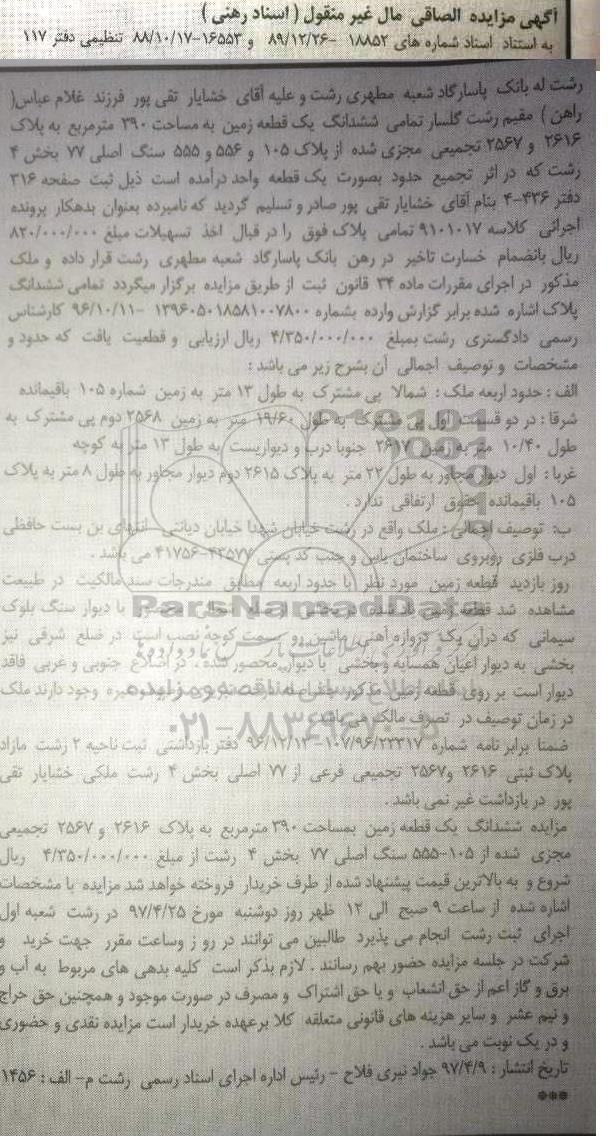 آگهی مزایده الصاقی مال غیر منقول ( اسناد رهنی )
به استناد اسناد شماره های ۱۸۸۵۲ -۸۹/۱۲/۲۶ و ۱۶۵۵۳-۸۸/۱۰/۱۷ تنظیمی دفتر ۱۱۷
رشت له بانک پاسارگاد شعبه مطهری رشت و علیه آقای خشایار تقی پور فرزند غلام عباس(
راهن ) مقیم رشت گلسار تمامی ششدانگ یک قطعه زمین به مساحت ۳۹۰ مترمربع به پلاک
۲۶۱۶ و ۲۵۶۷ تجمیعی مجزی شده از پلاک ۱۰۵ و ۵۵۶ و ۵۵۵ سنگ اصلی ۷۷ بخش ۴
رشت که در اثر تجمیع حدود بصورت یک قطعه واحد درآمده است ذیل ثبت صفحه ۳۱۶
دفتر ۴۳۶-۴ بنام آقای خشایار تقی پور صادر و تسلیم گردید که نامبرده بعنوان بدهکار پرونده
اجرائی کلاسه ۹۱۰۱۰۱۷ تمامی پلاک فوق را در قبال اخذ تسهیلات مبلغ ۸۲۰/۰۰۰/۰۰۰
ریال بانضمام خسارت تاخیر در رهن بانک پاسارگاد شعبه مطهری رشت قرار داده و ملک
مذکور در اجرای مقررات ماده ۳۴ قانون ثبت از طریق مزایده برگزار میگردد تمامی ششدانگ
پلاک اشاره شده برابر گزارش وارده بشماره ۱۳۹۶۰۵۰۱۸۵۸۱۰۰۷۸۰۰ -۹۶/۱۰/۱۱ کارشناس
رسمی دادگستری رشت بمبلغ ۴/۳۵۰/۰۰۰/۰۰۰ ریال ارزیابی و قطعیت یافت که حدود و
مشخصات و توصیف اجمالی آن بشرح زیر می باشد :
الف : حدود اربعه ملک : شمالا پی مشترک به طول ۱۳ متر به زمین شماره ۱۰۵ باقیمانده
شرقا : در دو قسمت اول پی مشترک به طول ۱۹/۶۰ متر به زمین ۲۵۶۸ دوم پی مشترک به
طول ۱۰/۴۰ متر به زمین ۲۶۱۷ جنوبا درب و دیواریست به طول ۱۳ متر به کوچه
غربا : اول دیوار مجاور به طول ۲۲ متر به پلاک ۲۶۱۵ دوم دیوار مجاور به طول ۸ متر به پلاک
۱۰۵ باقیمانده حقوق ارتفاقی ندارد .
ب: توصیف اجمالی : ملک واقع در رشت خیابان شهدا خیابان دیانتی انتهای بن بست حافظی
درب فلزی روبروی ساختمان یاس و جنب کد پستی ۴۳۵۷۷-۴۱۷۵۶ می باشد .
روز بازدید قطعه زمین مورد نظر با حدود اربعه مطابق مندرجات سند مالکیت در طبیعت
مشاهده شد قطعه زمین یاد شده محصور با دیوار سنگ بلوک
سیمانی که درآن یک دروازه آهنی ماشین رو بسمت کوچه نصب است در ضلع شرقی نیز
بخشی به دیوار اعیان همسایه و بخشی با دیوار محصور شده ، در اضلاع جنوبی و غربی فاقد
دیوار است بر روی قطعه زمین مذکور وجود دارند ملک
در زمان توصیف در تصرف مالک می باشد
ضمنا برابر نامه شماره ۱۰۷/۹۶/۲۳۳۱۷-۹۶/۱۲/۱۳ دفتر بازداشتی ثبت ناحیه ۲ رشت مازاد
پلاک ثبتی ۲۶۱۶ و۲۵۶۷ تجمیعی فرعی از ۷۷ اصلی بخش ۴ رشت ملکی خشایار تقی
پور در بازداشت غیر نمی باشد .
مزایده ششدانگ یک قطعه زمین بمساحت ۳۹۰ مترمربع به پلاک ۲۶۱۶ و ۲۵۶۷ تجمیعی
مجزی شده از ۱۰۵-۵۵۵ سنگ اصلی ۷۷ بخش ۴ رشت از مبلغ ۴/۳۵۰/۰۰۰/۰۰۰ ریال
شروع و به بالاترین قیمت پیشنهاد شده از طرف خریدار فروخته خواهد شد مزایده با مشخصات
اشاره شده از ساعت ۹ صبح الی ۱۲ ظهر روز دوشنبه مورخ ۹۷/۴/۲۵ در رشت شعبه اول
اجرای ثبت رشت انجام می پذیرد طالبین می توانند در رو ز وساعت مقرر جهت خرید و
شرکت در جلسه مزایده حضور بهم رسانند . لازم بذکر است کلیه بدهی های مربوط به آب و
برق و گاز اعم از حق انشعاب و یا حق اشتراک و مصرف در صورت موجود و همچنین حق حراج
و نیم عشر و سایر هزینه های قانونی متعلقه کلا برعهده خریدار است مزایده نقدی و حضوری
و در یک نوبت می باشد .
تاریخ انتشار : ۹۷/۴/۹ جواد نیری فلاح - رئیس اداره اجرای اسناد رسمی رشت م- الف : ۱۴۵۶
***
ParsNamadData
پایگاه اطلاع رسانی مناقصه و مزایده
۰۲۱-۸۸۳۴۹۶۷۰-۵